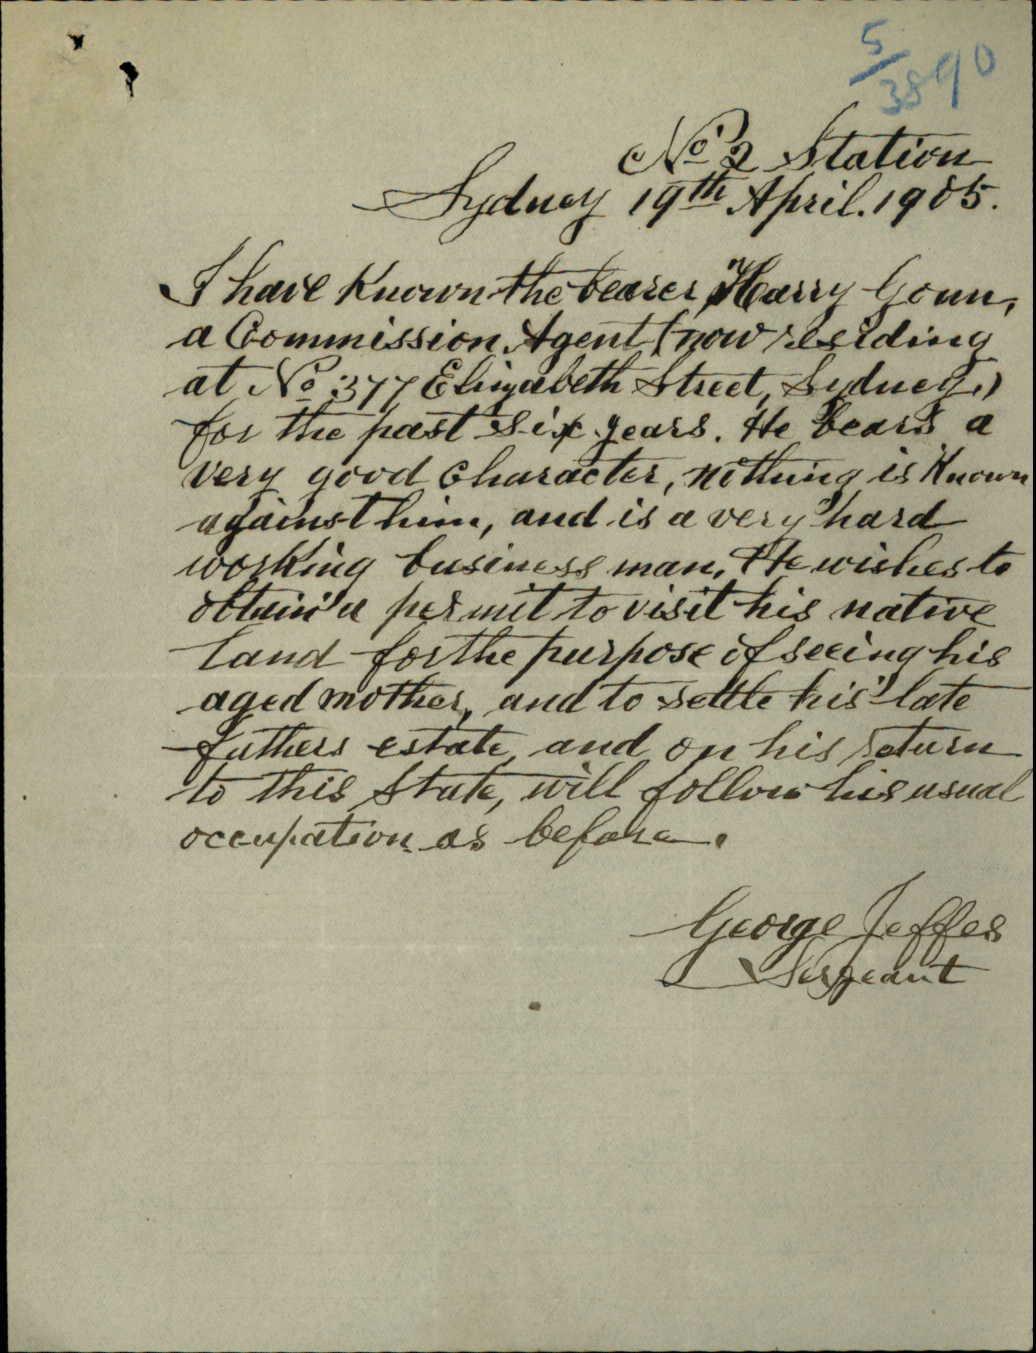 5/3890
No 2 Station
Sydney 19th April. 1905.
I have Known the bearer, Harry Goun,
a Commission Agent (now residing
at No 377 Elizabeth Street, Sydney,)
for the past six years. He bears a
very good character, nothing is Known
against him, and is a very hard
working business man. He wishes to
obtain a permit to visit his native
land for the purpose of seeing his
aged mother, and to settle his late
fathers estate, and on his return
to this State, will follow his usual
occupation as before.
George Jeffes
Sergeant